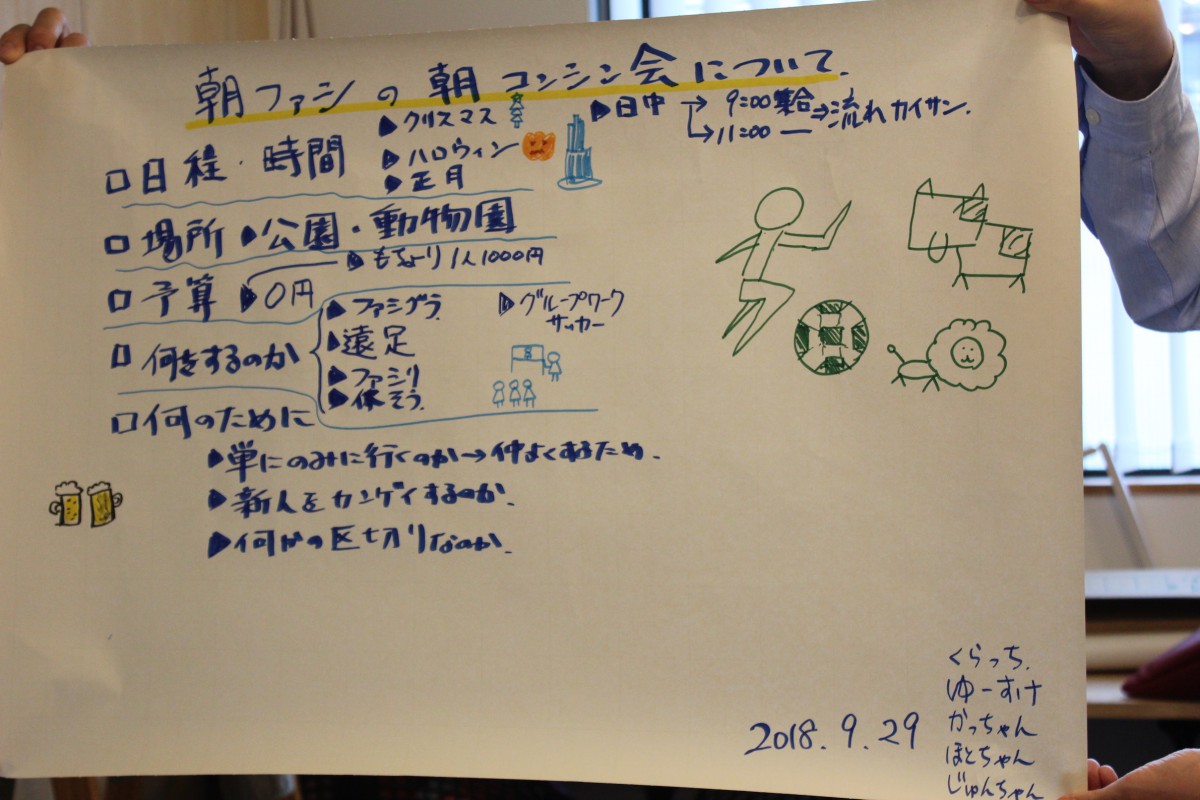 朝ファシの朝コンシン会について.
□日程・時間
▶クリスマス
▶ハロウィン
▶正月
▶日中 → 9:00集合⇒流れカイサン.
→11:00 ―
□場所 ▶公園・動物園
□予算 ▶0円
▶もちより 1人1000円
□何をするのか
▶ファシグラ
▶遠足
▶ファシリ
▶体そう.
▶グループワーク
サッカー
□何のために
▶単にのみに行くのか→仲よくするため.
▶新人をカンゲイするのか.
▶何かの区切りなのか.
2018.9.29
くらっち.
ゆーすけ
かっちゃん
ほとちゃん
じゅんちゃん